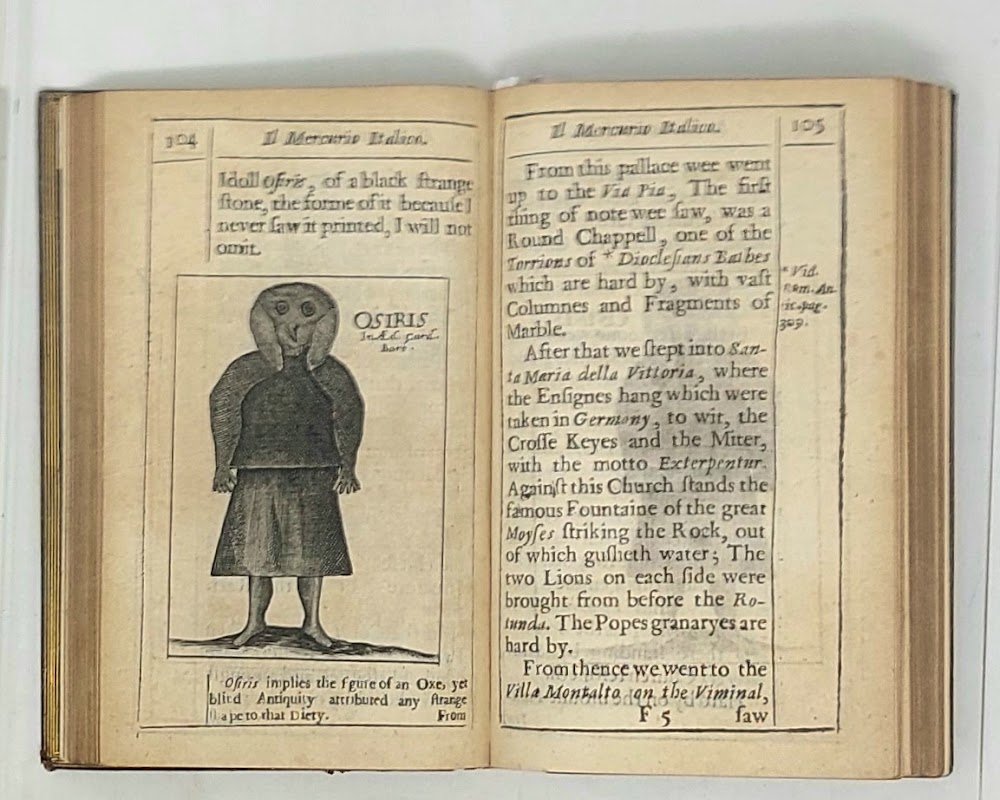 104
Il Mercurio Italico.
Idoll Osiris, of a black ſtrange
ſtone, the forme of it becauſe I
never ſaw it printed, I will not
omit.
OSIRIS
In Æd. Card.
Osiris implies the fgure of an Oxe, yet
blind Antiquity attributed any ſtrange
ape to that Diety.
From
Il Mercurio Italico.
105
From this pallace wee went
up to the Via Pia, The firſt
thing of note wee ſaw, was a
Round Chappell, one of the
Torrions of * Diocleſians Bathes
which are hard by, with vaſt
Columnes and Fragments of
Marble.
* Vid.
Rom. An
pag.
309.
After that we ſtept into San-
ta Maria della Vittoria, where
the Enſignes hang which were
taken in Germony, to wit, the
Croſſe Keyes and the Miter,
with the motto Exterpentur.
Againſt this Church ſtands the
famous Fountaine of the great
Moyſes ſtriking the Rock, out
of which guſheth water; The
two Lions on each ſide were
brought from before the Ro-
tunda. The Popes granaryes are
hard by.
From thence we went to the
Villa Montalto on the Viminal,
F 5
ſaw